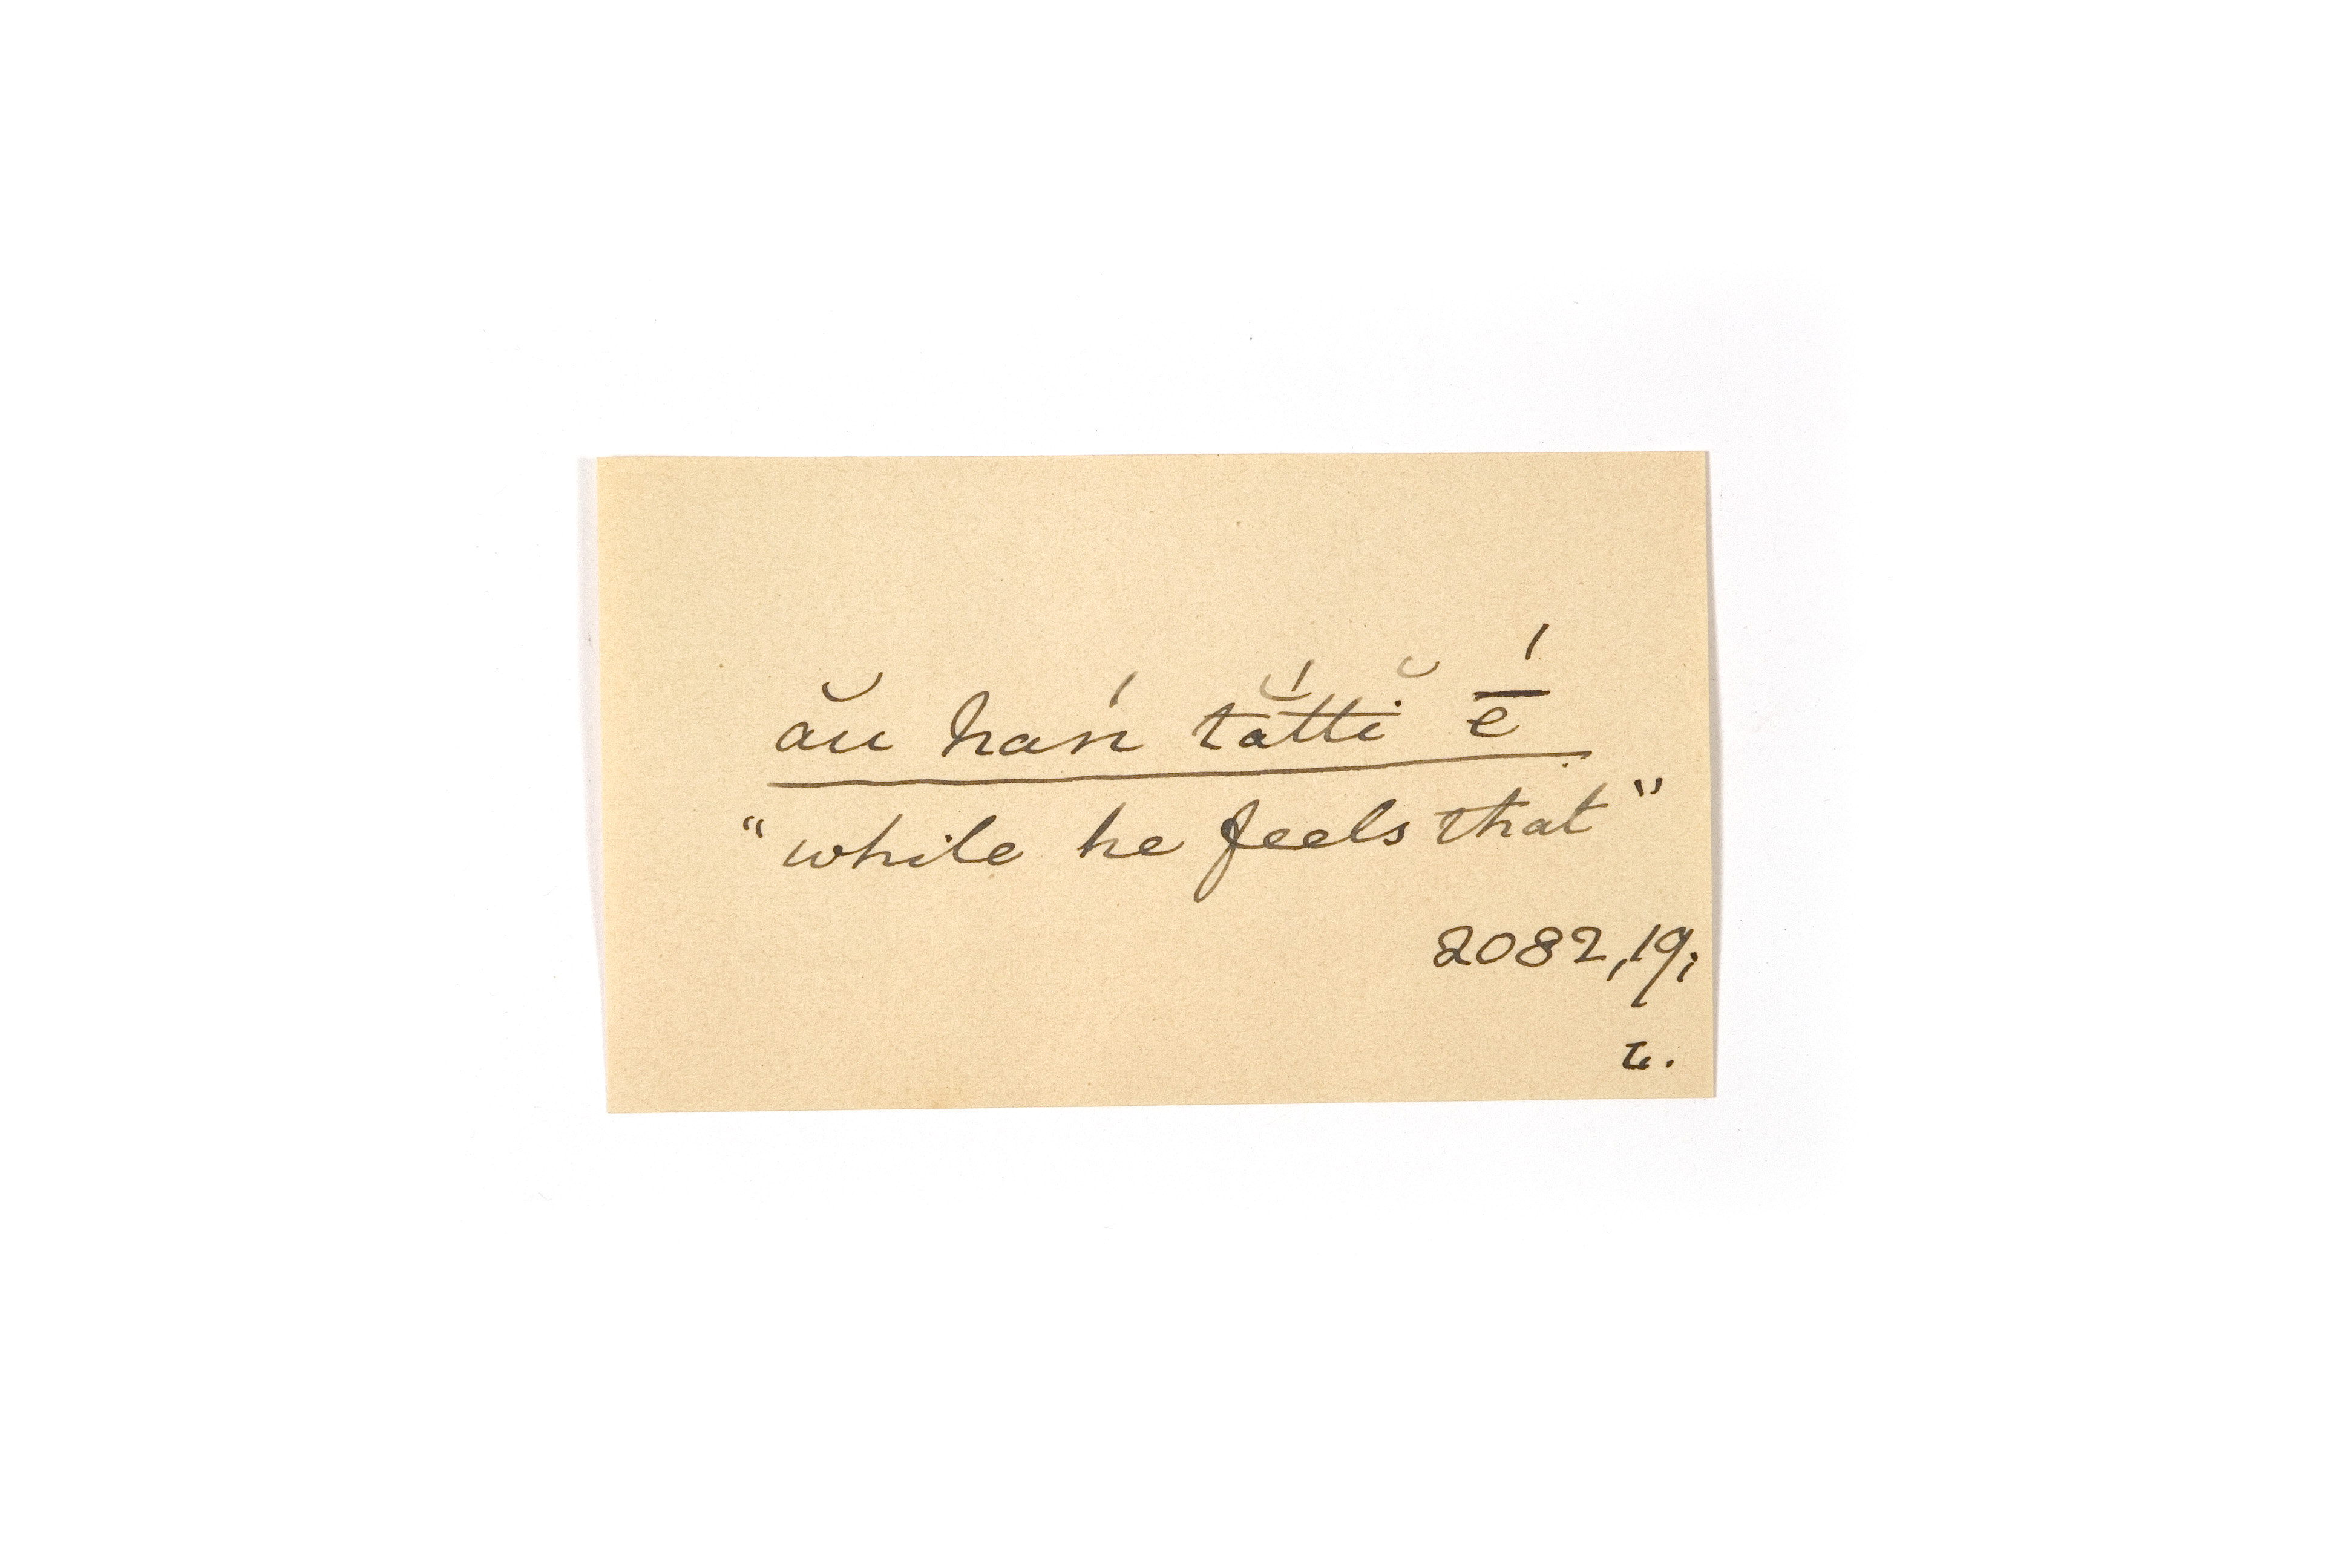 ău hań tắttĭ ḗ
“while he feels that”
2082,19;